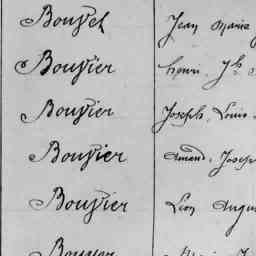 Bouvet Jean Marie
Bouvier henri Jh
Bouvier Joseph Louis
Bouvier Amand Joseph
Bouvier Léon Augu
Bouvier